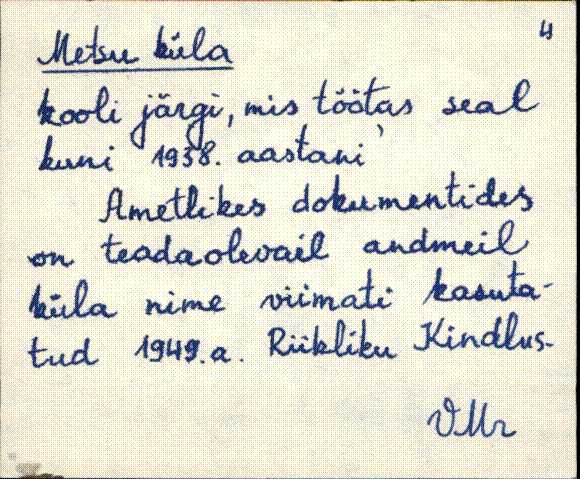 4
Metsu küla
kooli järgi, mis töötas seal
kuni 1938. aastani
Ametlikes dokumentides
on teadaolevail andmeil
küla nime viimati kasuta-
tud 1949.a. Riikliku Kindlus-
VMr